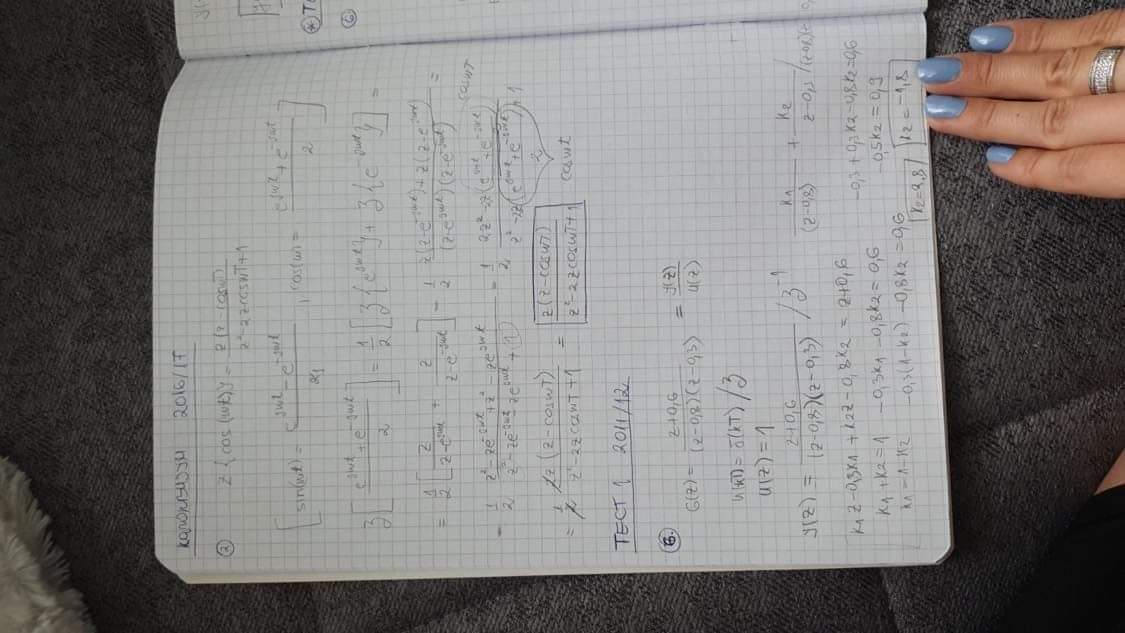 КОЛОКВИЈУМ 2016/17
② Z{cos(ωt)} = z(z-cosωT) / z²-2zcosωT+1
[sin(ωt) = e^jωt - e^-jωt / 2j , cos(ωt) = e^jωt + e^-jωt / 2]
Z[e^jωt + e^-jωt / 2] = 1/2 [Z{e^jωt} + Z{e^-jωt}] =
= 1/2 [z / z-e^jωt + z / z-e^-jωt] = 1/2 z(z-e^-jωt) + z(z-e^jωt) / (z-e^jωt)(z-e^-jωt) =
= 1/2 z²-ze^-jωt + z² - ze^jωt / z²-ze^-jωt - ze^jωt + 1 = 1/2 2z²-z(e^jωt + e^-jωt) / z²-z(e^jωt + e^-jωt)+1
cosωT
2
cosωt
= 1/2 2z(z-cosωT) / z²-2zcosωT+1 = z(z-cosωT) / z²-2zcosωT+1
ТЕСТ 1 2011/12
⑥. G(z) = z+0,6 / (z-0,8)(z-0,3) = Y(z) / U(z)
u(kT) = δ(kT) / Z
U(z) = 1
Y(z) = z+0,6 / (z-0,8)(z-0,3) / Z^-1 K1 / (z-0,8) + K2 / z-0,3
K1z - 0,3K1 + K2z - 0,8K2 = z+0,6
K1+K2=1 -0,3K1-0,8K2=0,6 -0,3+0,3K2-0,8K2=0,6
K1=1-K2 -0,3(1-K2)-0,8K2=0,6 -0,5K2=0,9
K2=2,8 K2=-1,8